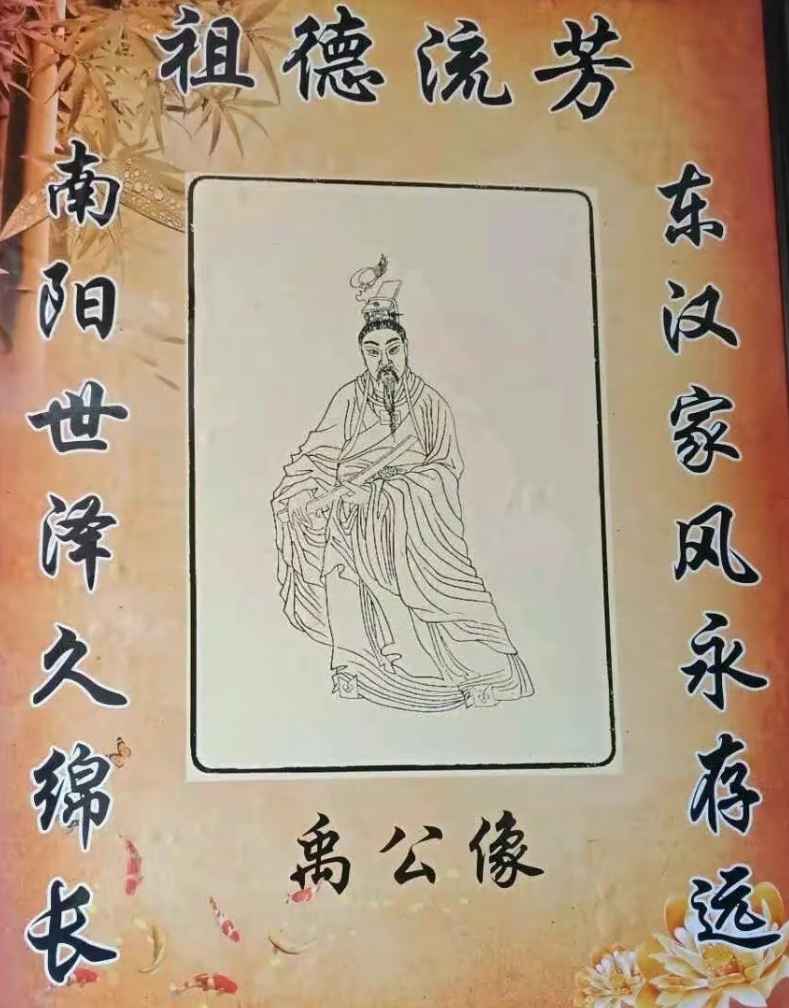 祖德流芳
东汉家风永存远
南阳世泽久绵长
禹公像